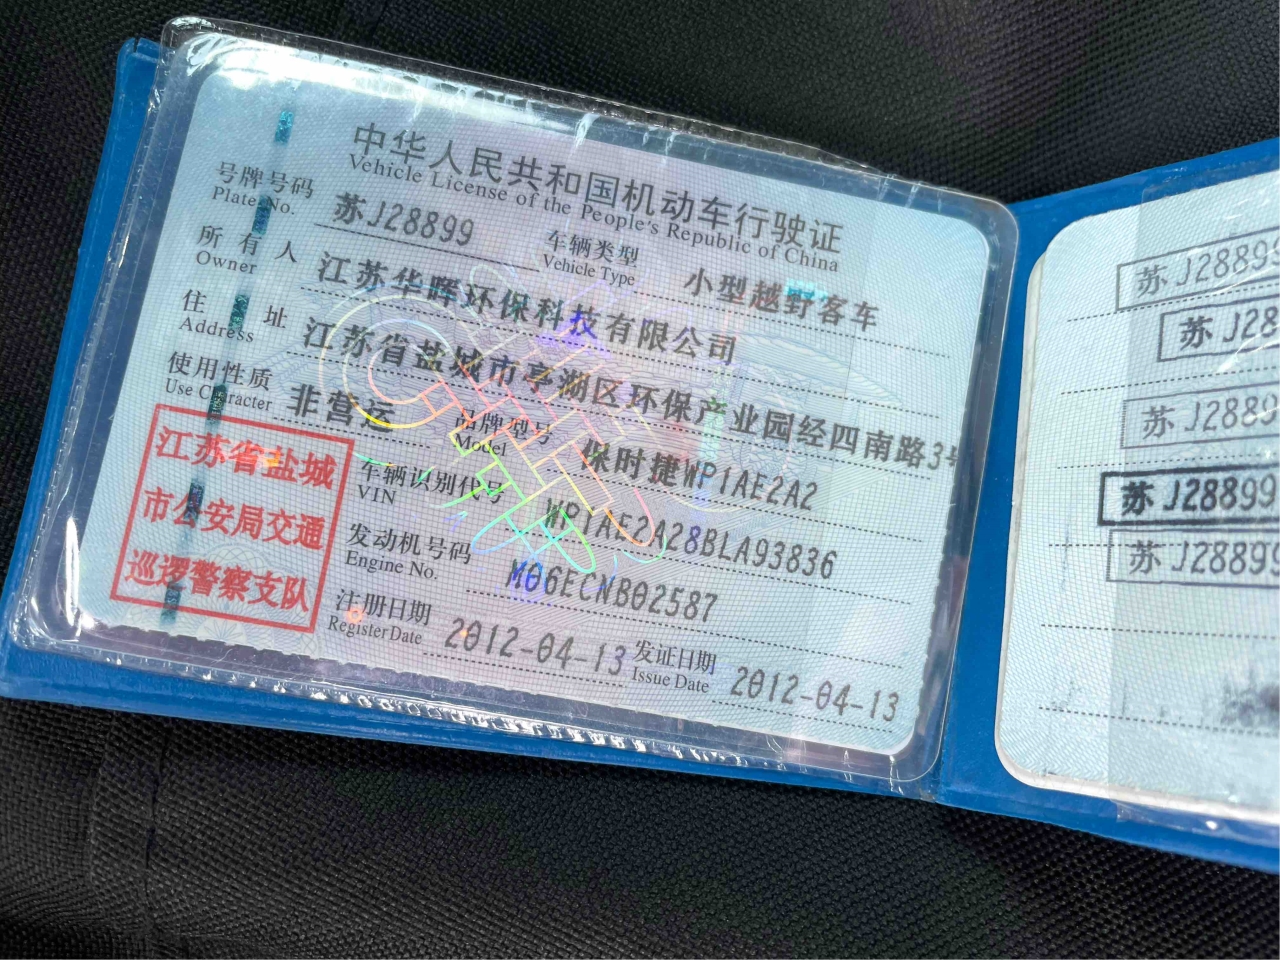 中华人民共和国机动车行驶证
Vehicle License of the People's Republic of China
号牌号码 苏J28899 车辆类型 小型越野客车
Plate No. Vehicle Type
所有人 江苏华晖环保科技有限公司
Owner
住址 江苏省盐城市亭湖区环保产业园经四南路3号
Address
使用性质 非营运 品牌型号 保时捷WP1AE2A2
Use Character Model
车辆识别代号 WP1AE2A28BLA93836
VIN
发动机号码 M06ECNB02587
Engine No.
注册日期 2012-04-13 发证日期 2012-04-13
Register Date Issue Date
江苏省盐城
市公安局交通
巡逻警察支队
苏J28899
苏J28
苏J2889
苏J28899
苏J28899